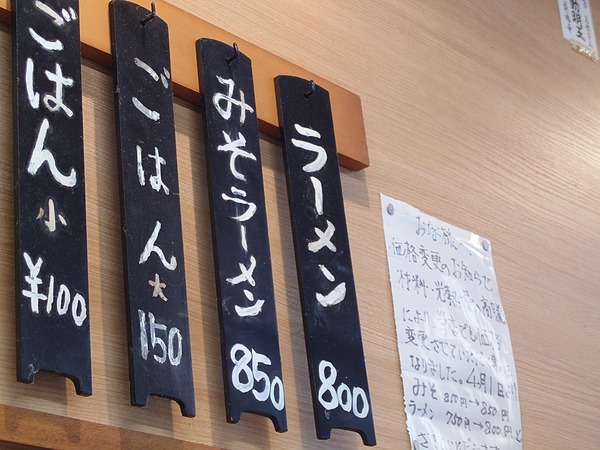 ごはん 小 ¥100
ごはん 大 150
みそラーメン 850
ラーメン 800
お客様へ
価格変更のお知らせ
材料・光熱
により
変更させて
なりました。4月1日より
みそ 800円→850円
ラーメン 750円→800円と